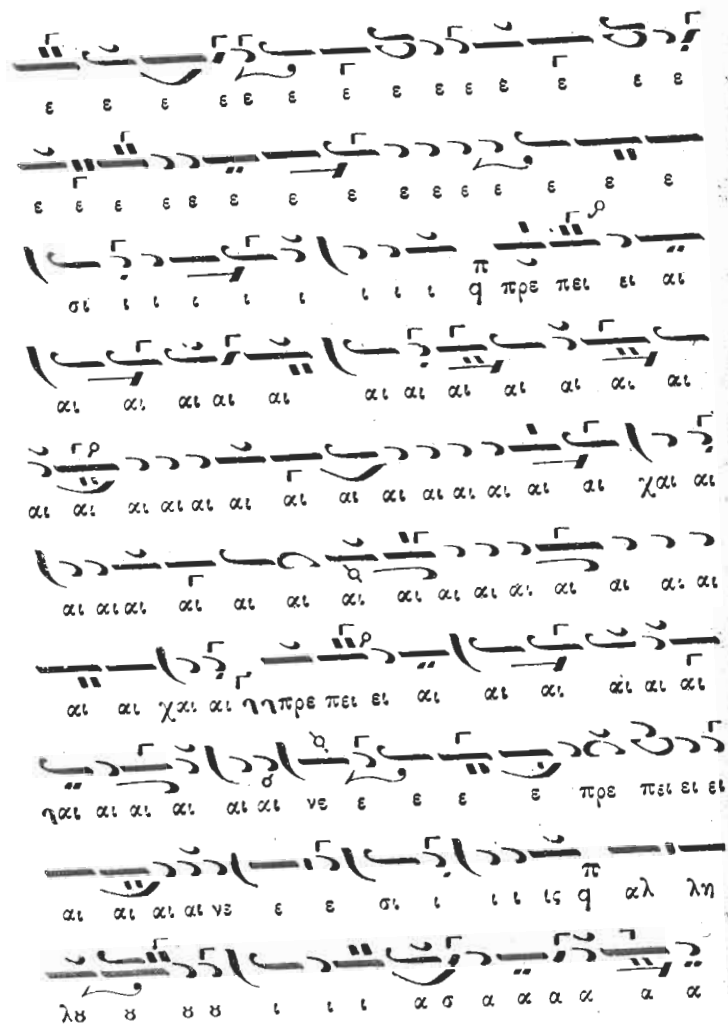 ε ε ε ε ε ε ε ε ε ε ε ε ε ε
ε ε ε ε ε ε ε ε ε ε ε ε ε ε ε
σι ι ι ι ι ι ι ι ι π q πρε πει ει αι
αι αι αι αι αι αι αι αι αι αι αι αι
αι αι αι αι αι αι αι αι αι αι αι αι αι αι χαι αι
αι αι αι αι αι αι αι αι αι αι αι αι αι αι αι
αι αι χαι αι πρε πει ει αι αι αι αι αι αι
αι αι αι αι αι αι νε ε ε ε ε πρε πει ει ει
αι αι αι αι νε ε ε σι ι ι ι ις π q αλ λη
λȣ ȣ ȣ ȣ ι ι ι α σ α α α α α α